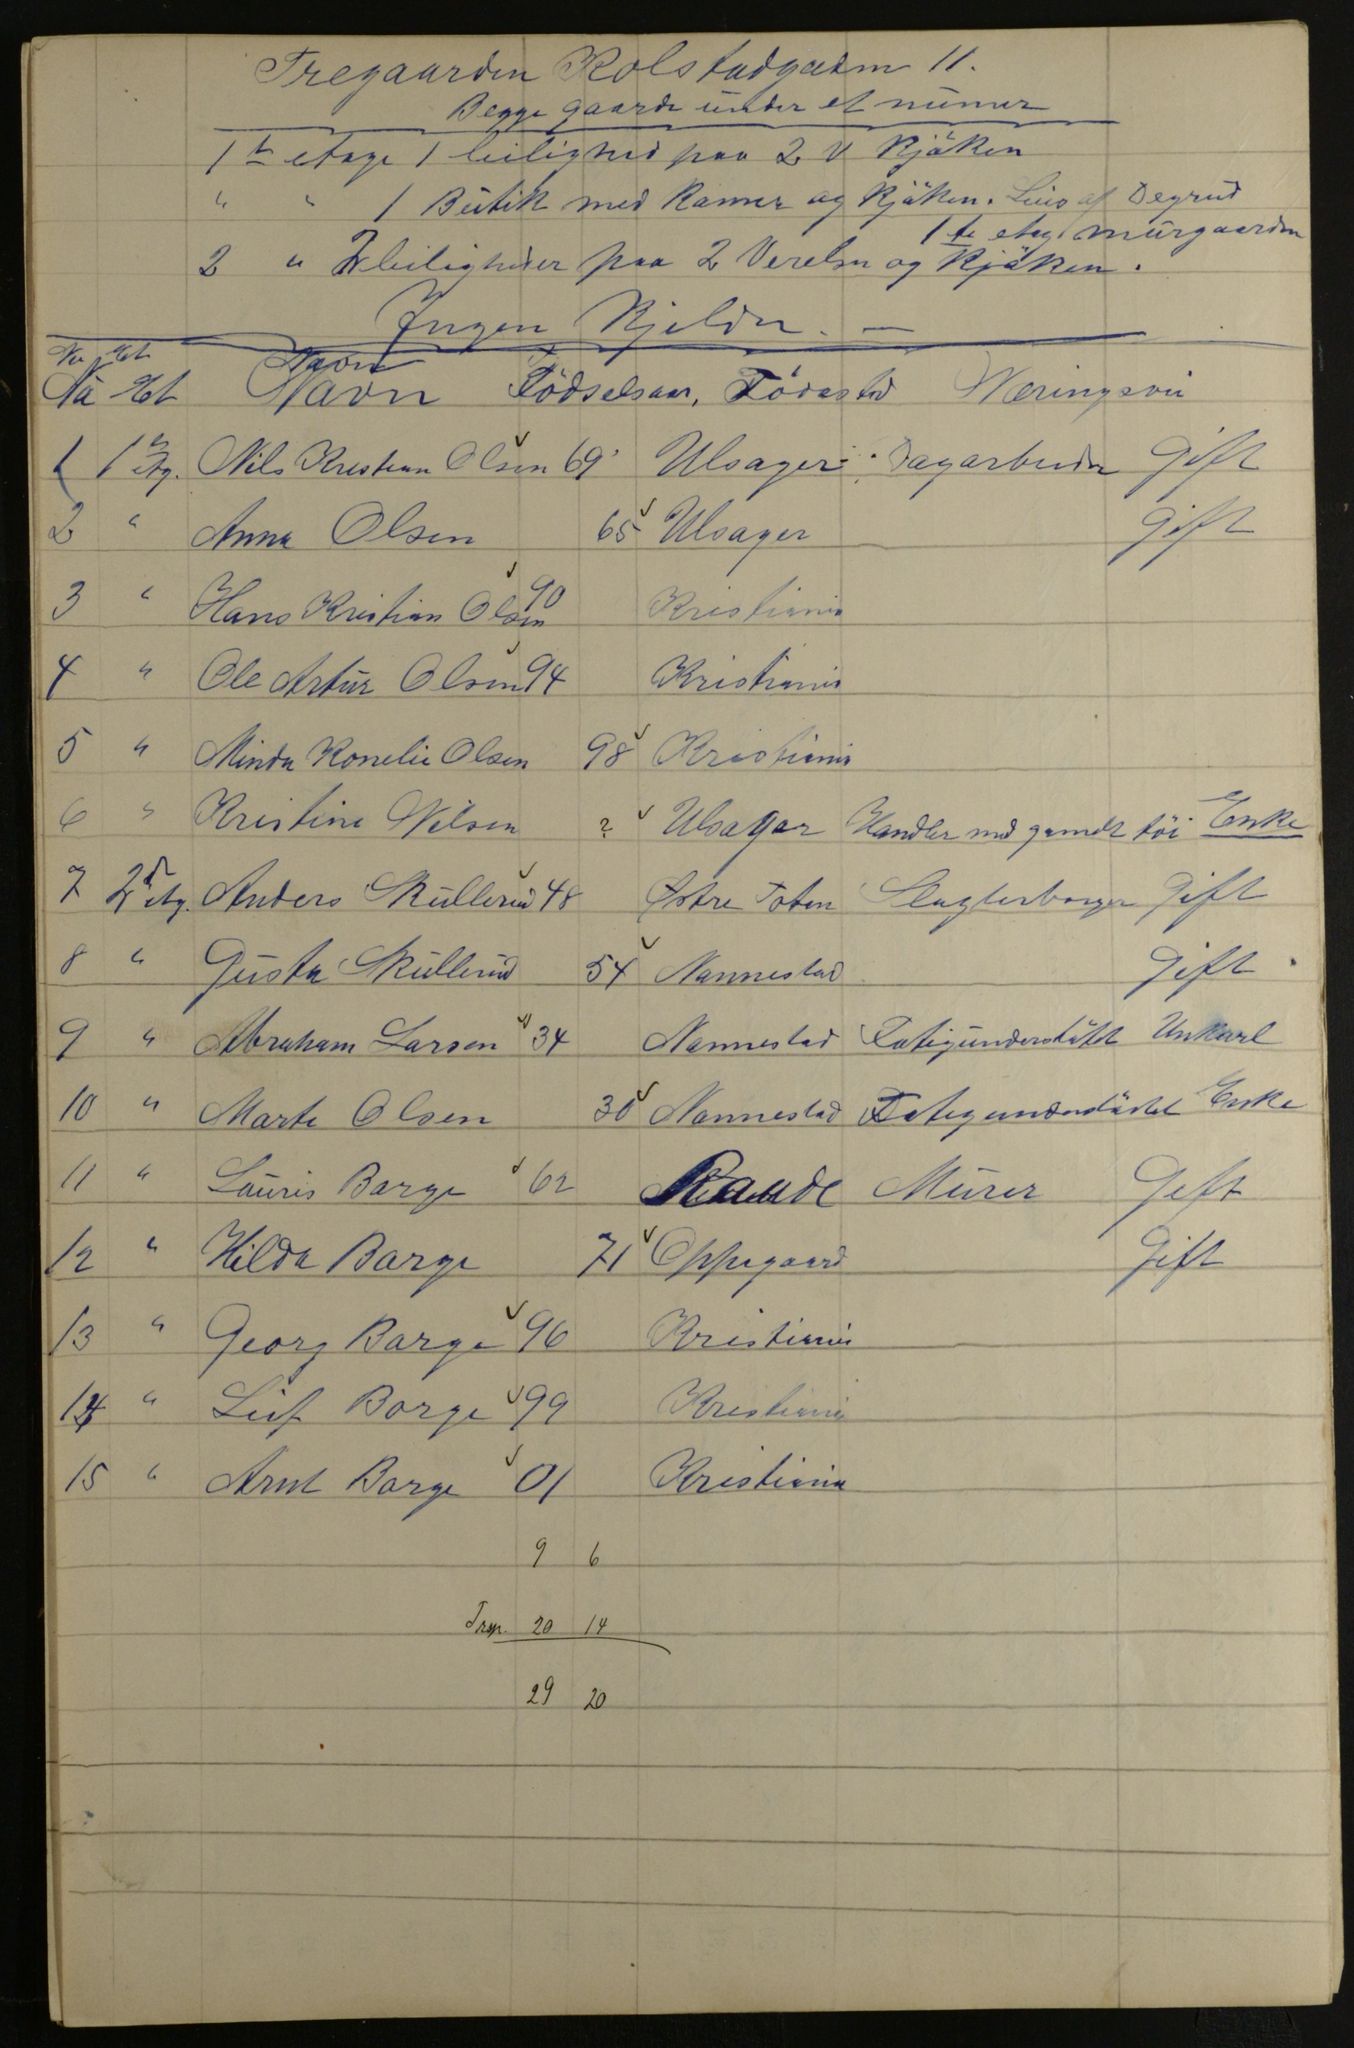 Tregaarden Kolstadgaden 11.
Begge gaarde under et numer
1te etage 1 leilighed paa 2 V Kjöken
" " 1 Butik med Kamer og Kjöken. Leies af Degrud
1te etag murgaarden
2 " 2 leiligheder paa 2 Verelser og Kjöken.
Ingen Kjelder. —
No Et Navn
No Et Navn Födselsaar, Födested Næringsvei
1 1te etg. Nils Kristian Olsen 69 Ulsager Dagarbeider Gift
2 " Anna Olsen 65 Ulsager Gift
3 " Hans Kristian Olsen 90 Kristiania
4 " Ole Artur Olsen 94 Kristiania
5 " Minda Konelie Olsen 98 Kristiania
6 " Kristine Nilsen ? Ulsager Handler med gamelt töi Enke
7 2d etg. Anders Skullerud 48 Østre Toten Slagterborger Gift
8 " Gusta Skullerud 54 Nannestad Gift
9 " Abraham Larsen 34 Nannestad Fatigunderstötet Unkarl
10 " Marte Olsen 30 Nannestad Fatigunderstöttet Enke
11 " Lauris Barge 62 Raade Murer Gift
12 " Hilda Barge 71 Oppegaard Gift
13 " Georg Barge 96 Kristiania
14 " Leif Borge 99 Kristiania
15 " Arnt Borge 01 Kristiania
9 6
Trsp. 20 14
29 20